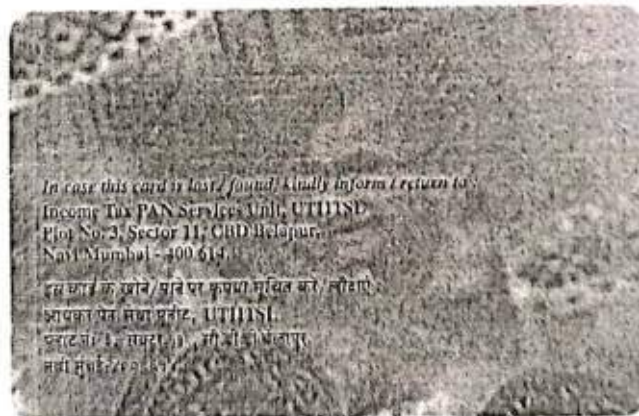 In case this card is lost / found, kindly inform / return to :
Income Tax PAN Services Unit, UTIISL
Plot No: 3, Sector 11, CBD Belapur,
Navi Mumbai - 400 614.
इस कार्ड के खोने/पाने पर कृपया सूचित करें/लौटाएं :
आयकर पैन सेवा यूनिट, UTIISL
प्लाट नं: ३, सेक्टर ११, सी.बी.डी. बेलापुर,
नवी मुंबई-